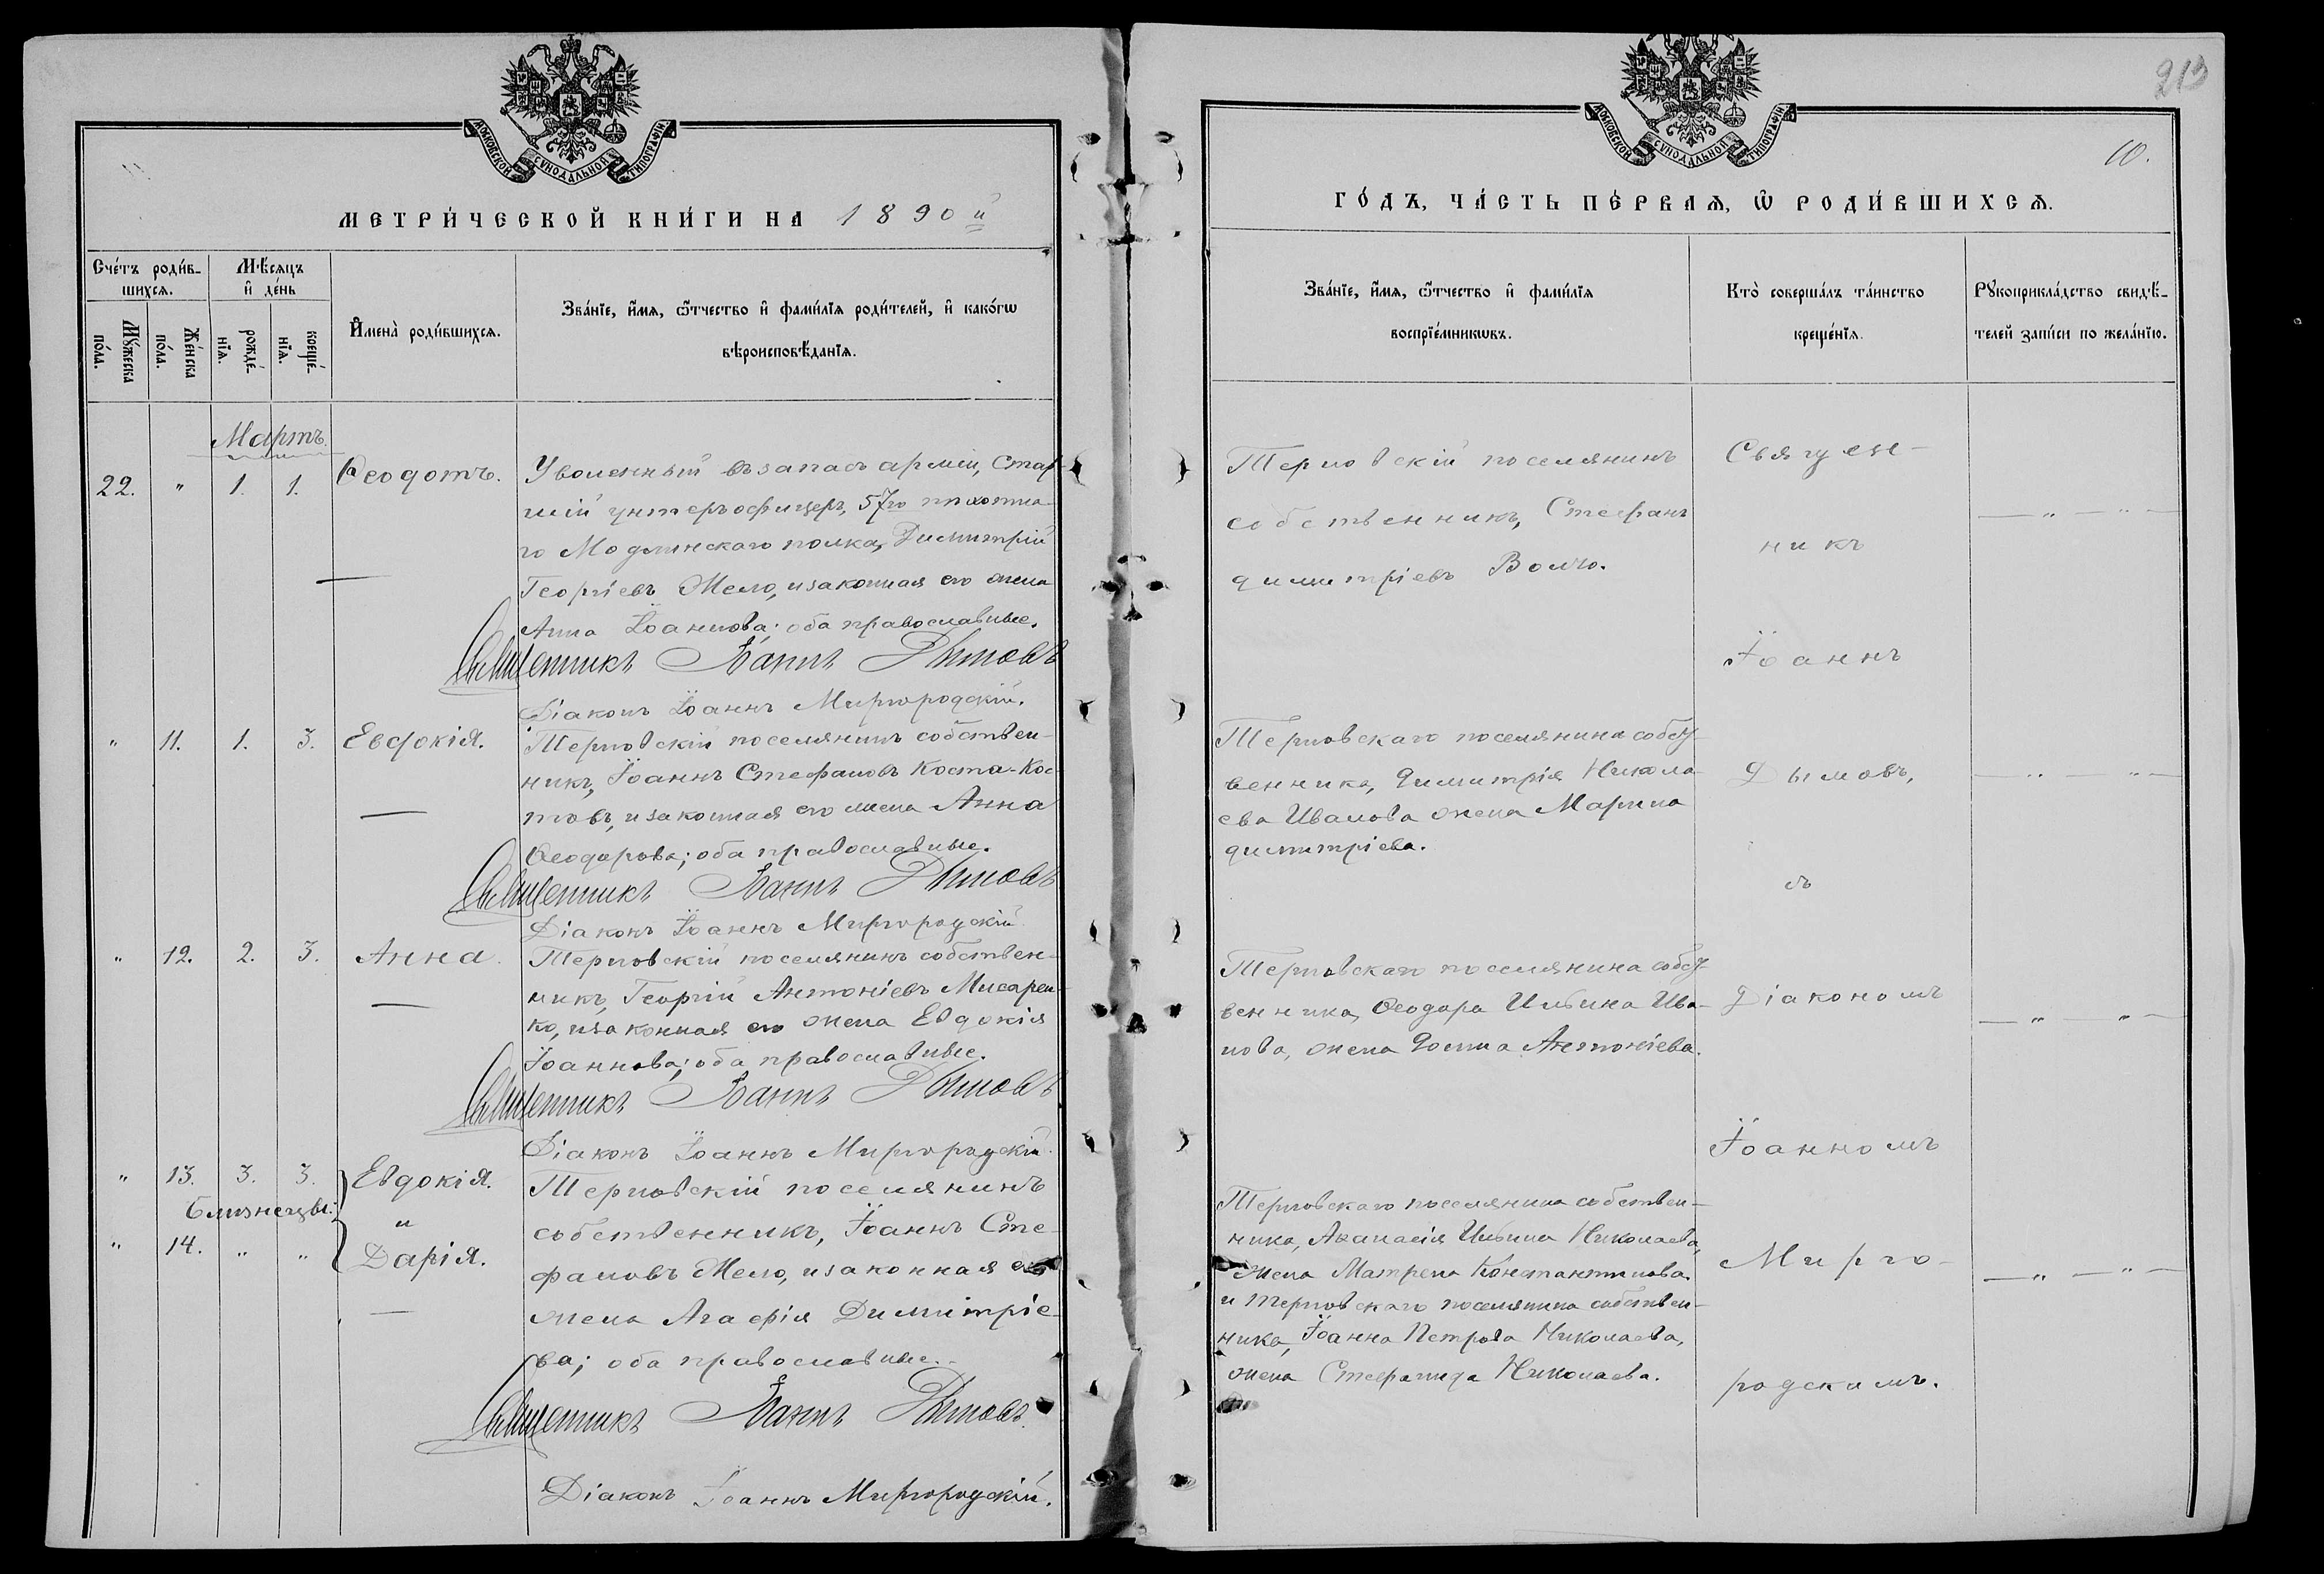 МОСКОВСКОЙ СѴНОДАЛЬНОЙ ТИПОГРАФІИ
МЕТРИ́ЧЕСКОЙ КНИ́ГИ НА 1890й
Сче́тъ роди́в-
шихся.
Мѣсяцъ
и҆ де́нь
Мꙋ́жеска
по́ла.
Же́нска
по́ла.
рожде́-
нїѧ.
креще́-
нїѧ.
И҆мена̀ роди́вшихсѧ.
Зва́нїе, и҆́мѧ, ѻ҆́тчество и҆ фами́лїѧ роди́телей, и҆ како́гѡ
вѣроисповѣ́данїѧ.
Мартъ.
22. " 1. 1. Ѳеодотъ.
Уволенный въ запасъ арміи, Стар-
шій унтеръ офицеръ, 57го пѣхотна-
го Модлинскаго полка, Димитрій
Георгіевъ Мело, и законная его жена
Анна Іоаннова; оба православные.
Священникъ Іоаннъ Дымовъ
Діаконъ Іоаннъ Миргородскій.
" 11. 1. 3. Евдокія.
Терновскій поселянинъ собствен-
никъ, Іоаннъ Стефановъ Коста-Кос-
товъ, и законная его жена Анна
Ѳеодорова; оба православные.
Священникъ Іоаннъ Дымовъ
Діаконъ Іоаннъ Миргородскій
" 12. 2. 3. Анна.
Терновскій поселянинъ собствен-
никъ, Георгій Антоніевъ Писарен-
ко, и законная его жена Евдокія
Іоаннова; оба православные.
Священникъ Іоаннъ Дымовъ
Діаконъ Іоаннъ Миргородскій.
" 13. 3. 3. Евдокія.
близнецы: и
" 14. " " Дарія.
Терновскій поселянинъ
собственникъ, Іоаннъ Сте-
фановъ Мело, и законная его
жена Агафія Димитріе-
ва; оба православные.
Священникъ Іоаннъ Дымовъ.
Діаконъ Іоаннъ Миргородскій.
213
10.
МОСКОВСКОЙ СѴНОДАЛЬНОЙ ТИПОГРАФІИ
ГО́ДЪ, ЧА́СТЬ ПЕ́РВАѦ, Ѿ РОДИ́ВШИХСѦ.
Зва́нїе, и҆́мѧ, ѻ҆́тчество и҆ фами́лїѧ
воспрїе́мникѡвъ.
Кто̀ соверша́лъ та́инство
креще́нїѧ.
Рꙋкоприкла́дство свидѣ́-
телей за́писи по жела́нїю.
Терновскій поселянинъ
собственникъ, Стефанъ
Димитріевъ Волчо.
Терновскаго поселянина собст-
венника, Димитрія Никола-
ева Иванова жена Марина
Димитріева.
Терновскаго поселянина собст-
венника, Ѳеодора Ильина Ива-
нова, жена Домна Антоніева.
Терновскаго поселянина собствен-
ника, Аѳанасія Ильина Николаева,
жена Матрена Константинова.
и терновскаго поселянина собствен-
ника, Іоанна Петрова Николаева,
жена Стефанида Николаева.
Священ-
никъ
Іоаннъ
Дымовъ,
съ
Діакономъ
Іоанномъ
Мирго-
родскимъ.
— " — " —
— " — " —
— " — " —
— " — " —